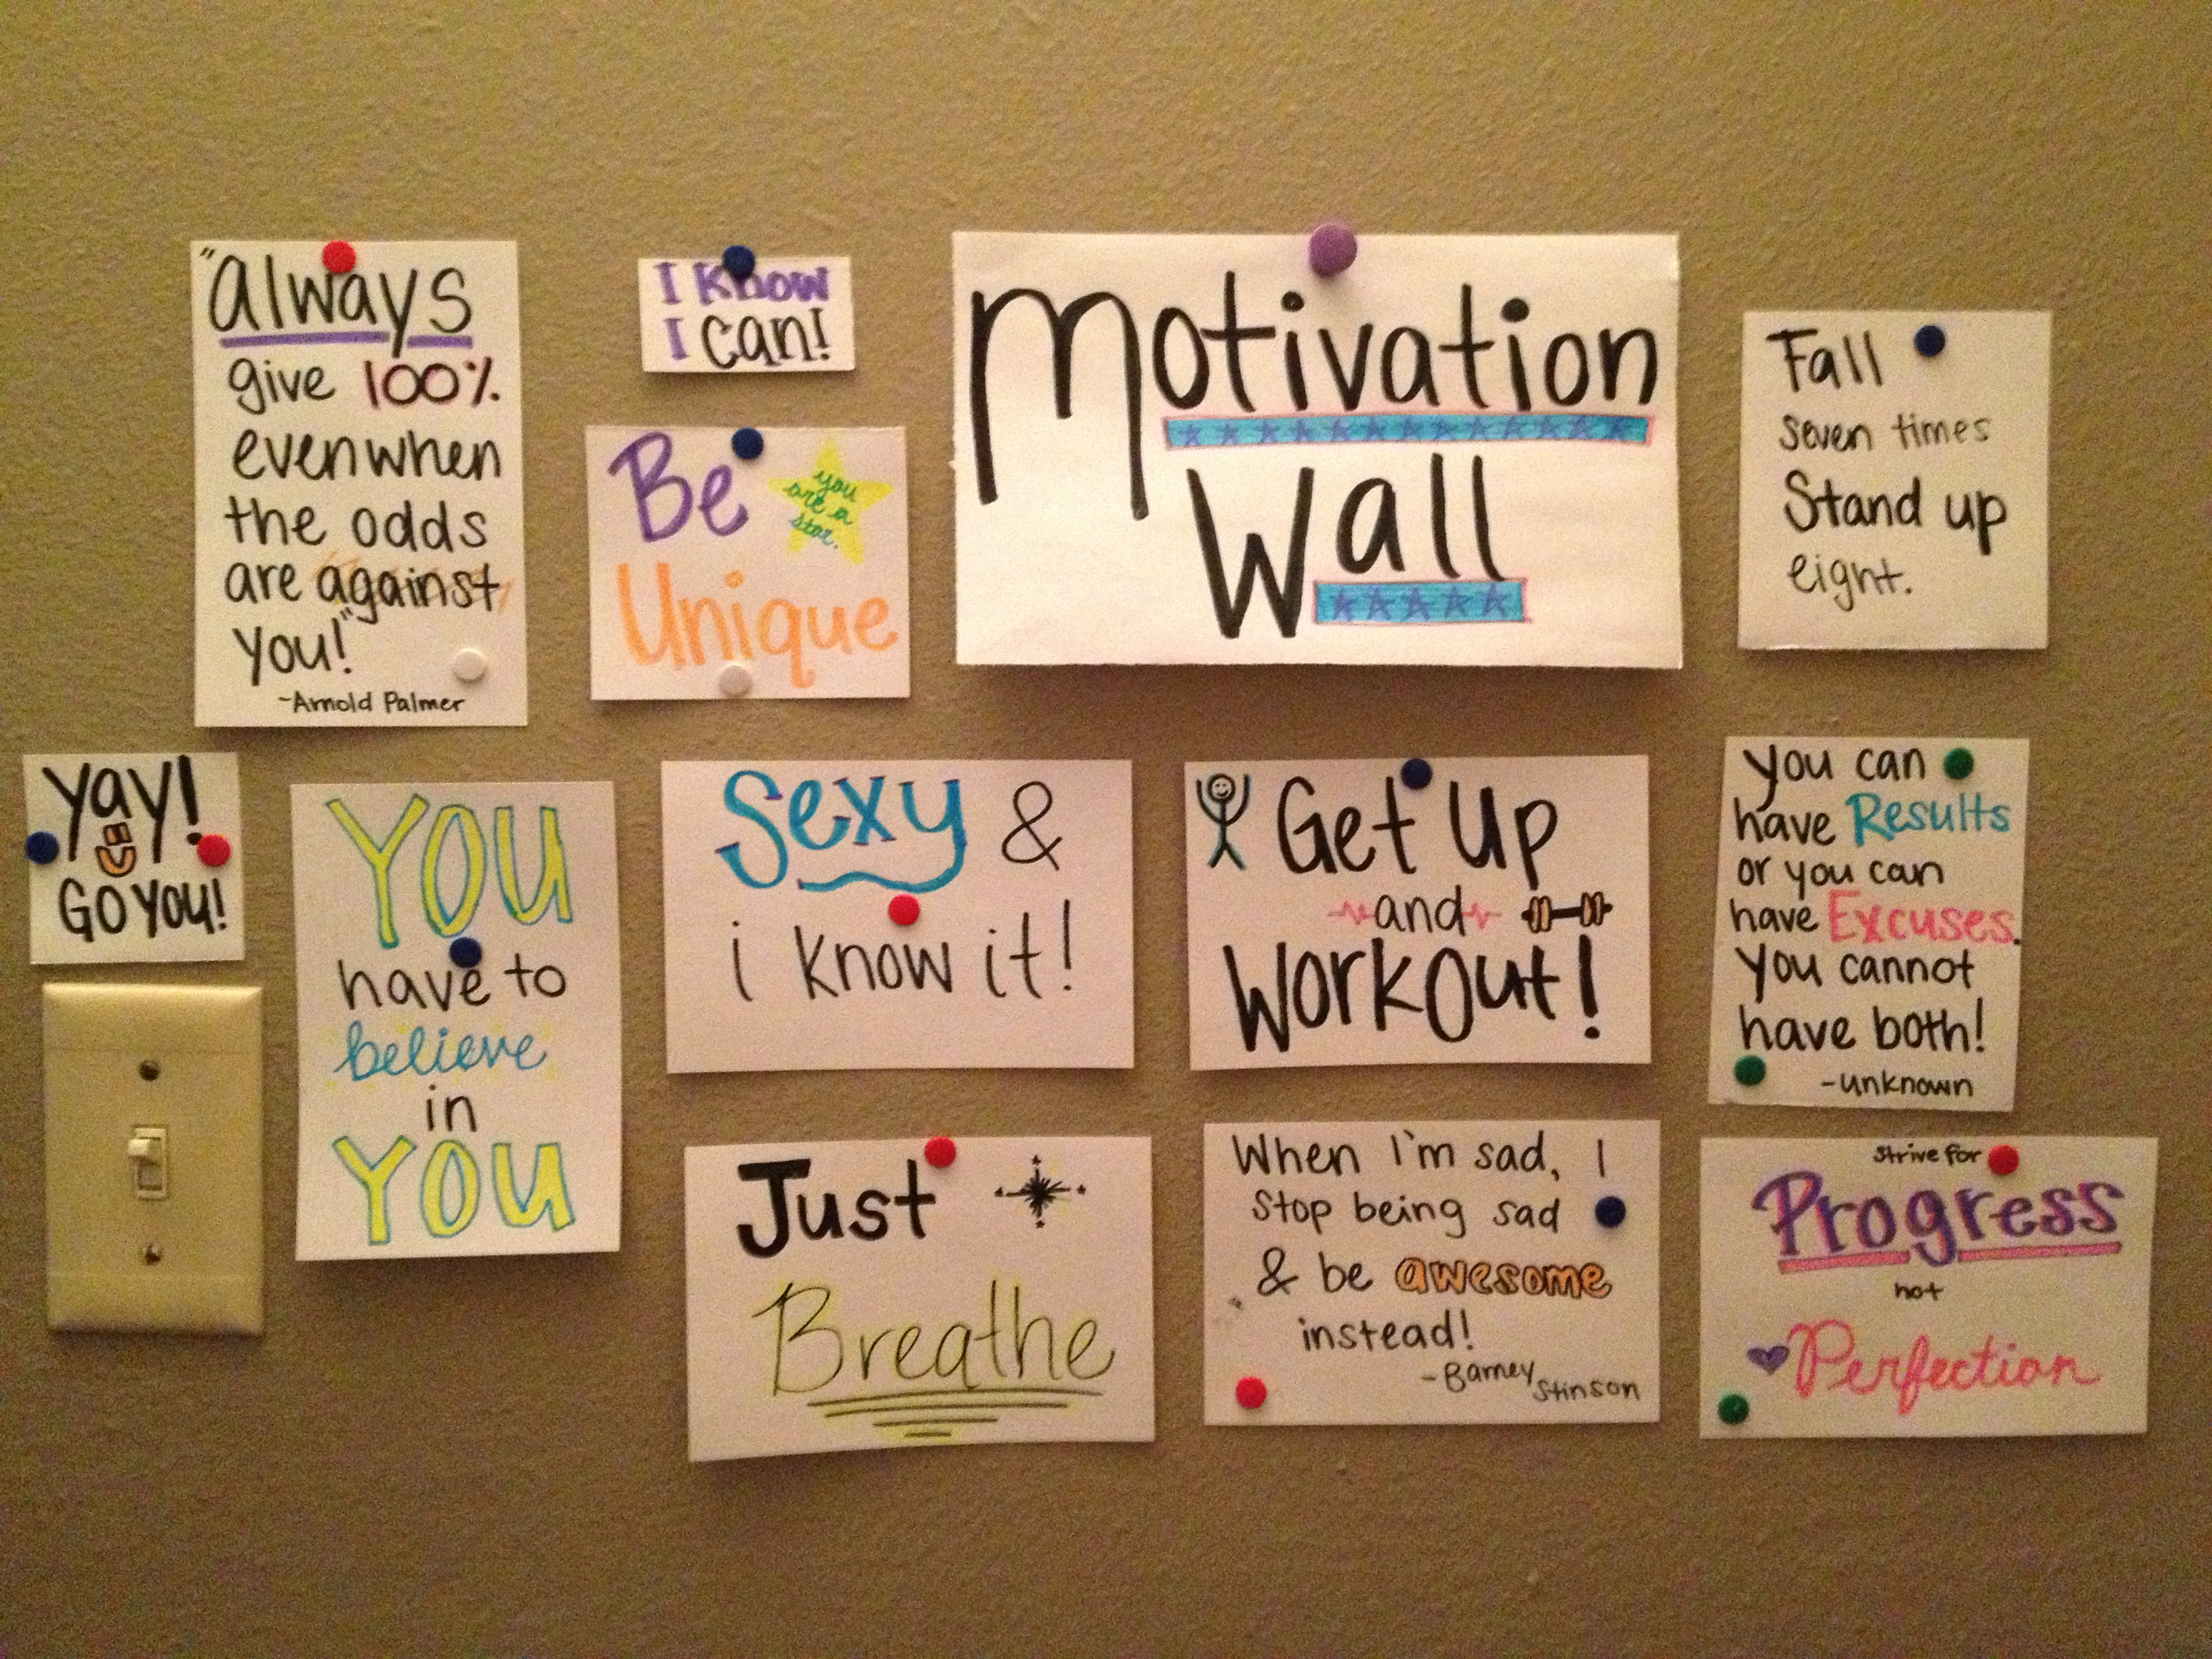 "always
give 100%
even when
the odds
are against
you!"
-Arnold Palmer
I Know
I can!
Be
you
are a
star.
Unique
Motivation
Wall
Fall
seven times
Stand up
eight.
Yay!
GO YOU!
YOU
have to
believe
in
YOU
Sexy &
i know it!
Get Up
and
WorkOut!
You can
have Results
or you can
have Excuses.
You cannot
have both!
-unknown
Just
Breathe
When I'm sad, I
stop being sad
& be awesome
instead!
-Barney
Stinson
strive for
Progress
not
Perfection